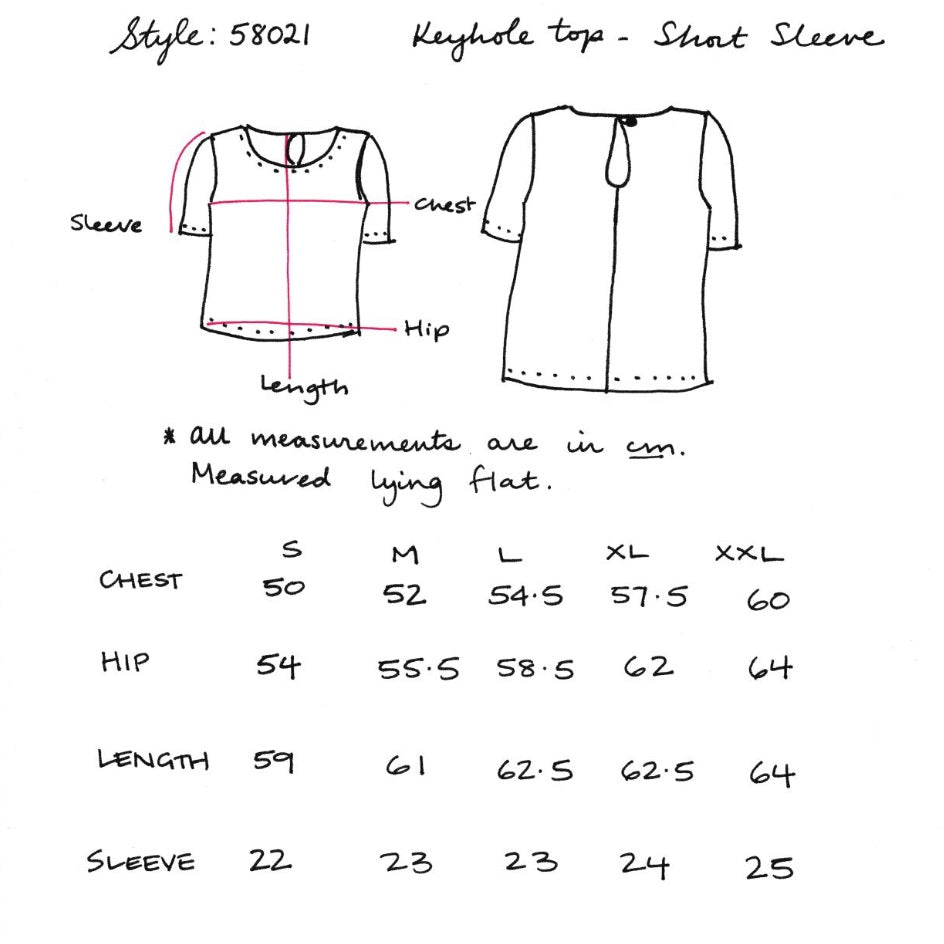 Style: 58021 Keyhole top - Short Sleeve
Sleeve
Chest
Hip
Length
* all measurements are in cm.
Measured lying flat.
S M L XL XXL
CHEST 50 52 54.5 57.5 60
HIP 54 55.5 58.5 62 64
LENGTH 59 61 62.5 62.5 64
SLEEVE 22 23 23 24 25